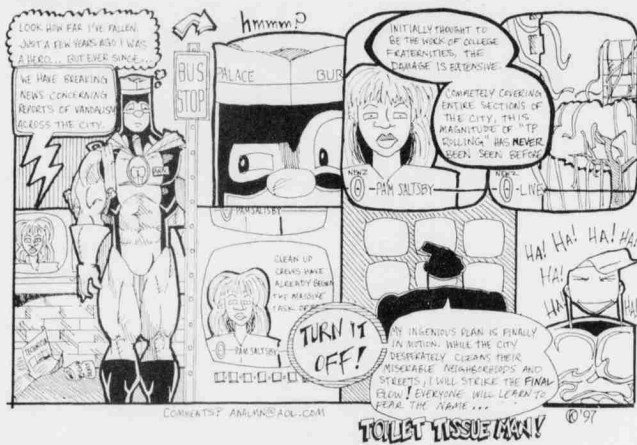 LOOK HOW FAR I'VE FALLEN.
JUST A FEW YEARS AGO I WAS
A HERO... BUT EVER SINCE...
WE HAVE BREAKING
NEWS CONCERNING
REPORTS OF VANDALISM
ACROSS THE CITY.
BUS
STOP
hmmm?
PALACE
BUR
INITIALLY THOUGHT TO
BE THE WORK OF COLLEGE
FRATERNITIES, THE
DAMAGE IS EXTENSIVE.
COMPLETELY COVERING
ENTIRE SECTIONS OF
THE CITY, THIS
MAGNITUDE OF "TP
ROLLING" HAS NEVER
BEEN SEEN BEFORE
-PAM SALTSBY
-LIVE
-PAM SALTSBY
CLEAN UP
CREWS HAVE
ALREADY BEGUN
THE MASSIVE
TASK OF
-PAM SALTSBY
TURN IT
OFF!
MY INGENIOUS PLAN IS FINALLY
IN MOTION. WHILE THE CITY
DESPERATELY CLEANS THEIR
MISERABLE NEIGHBORHOODS AND
STREETS, I WILL STRIKE THE FINAL
BLOW! EVERYONE WILL LEARN TO
FEAR THE NAME...
TOILET TISSUE MAN!
HA! HA! HA! HA!
HA!
HA!
'97
COMMENTS? ANALMN@AOL.COM